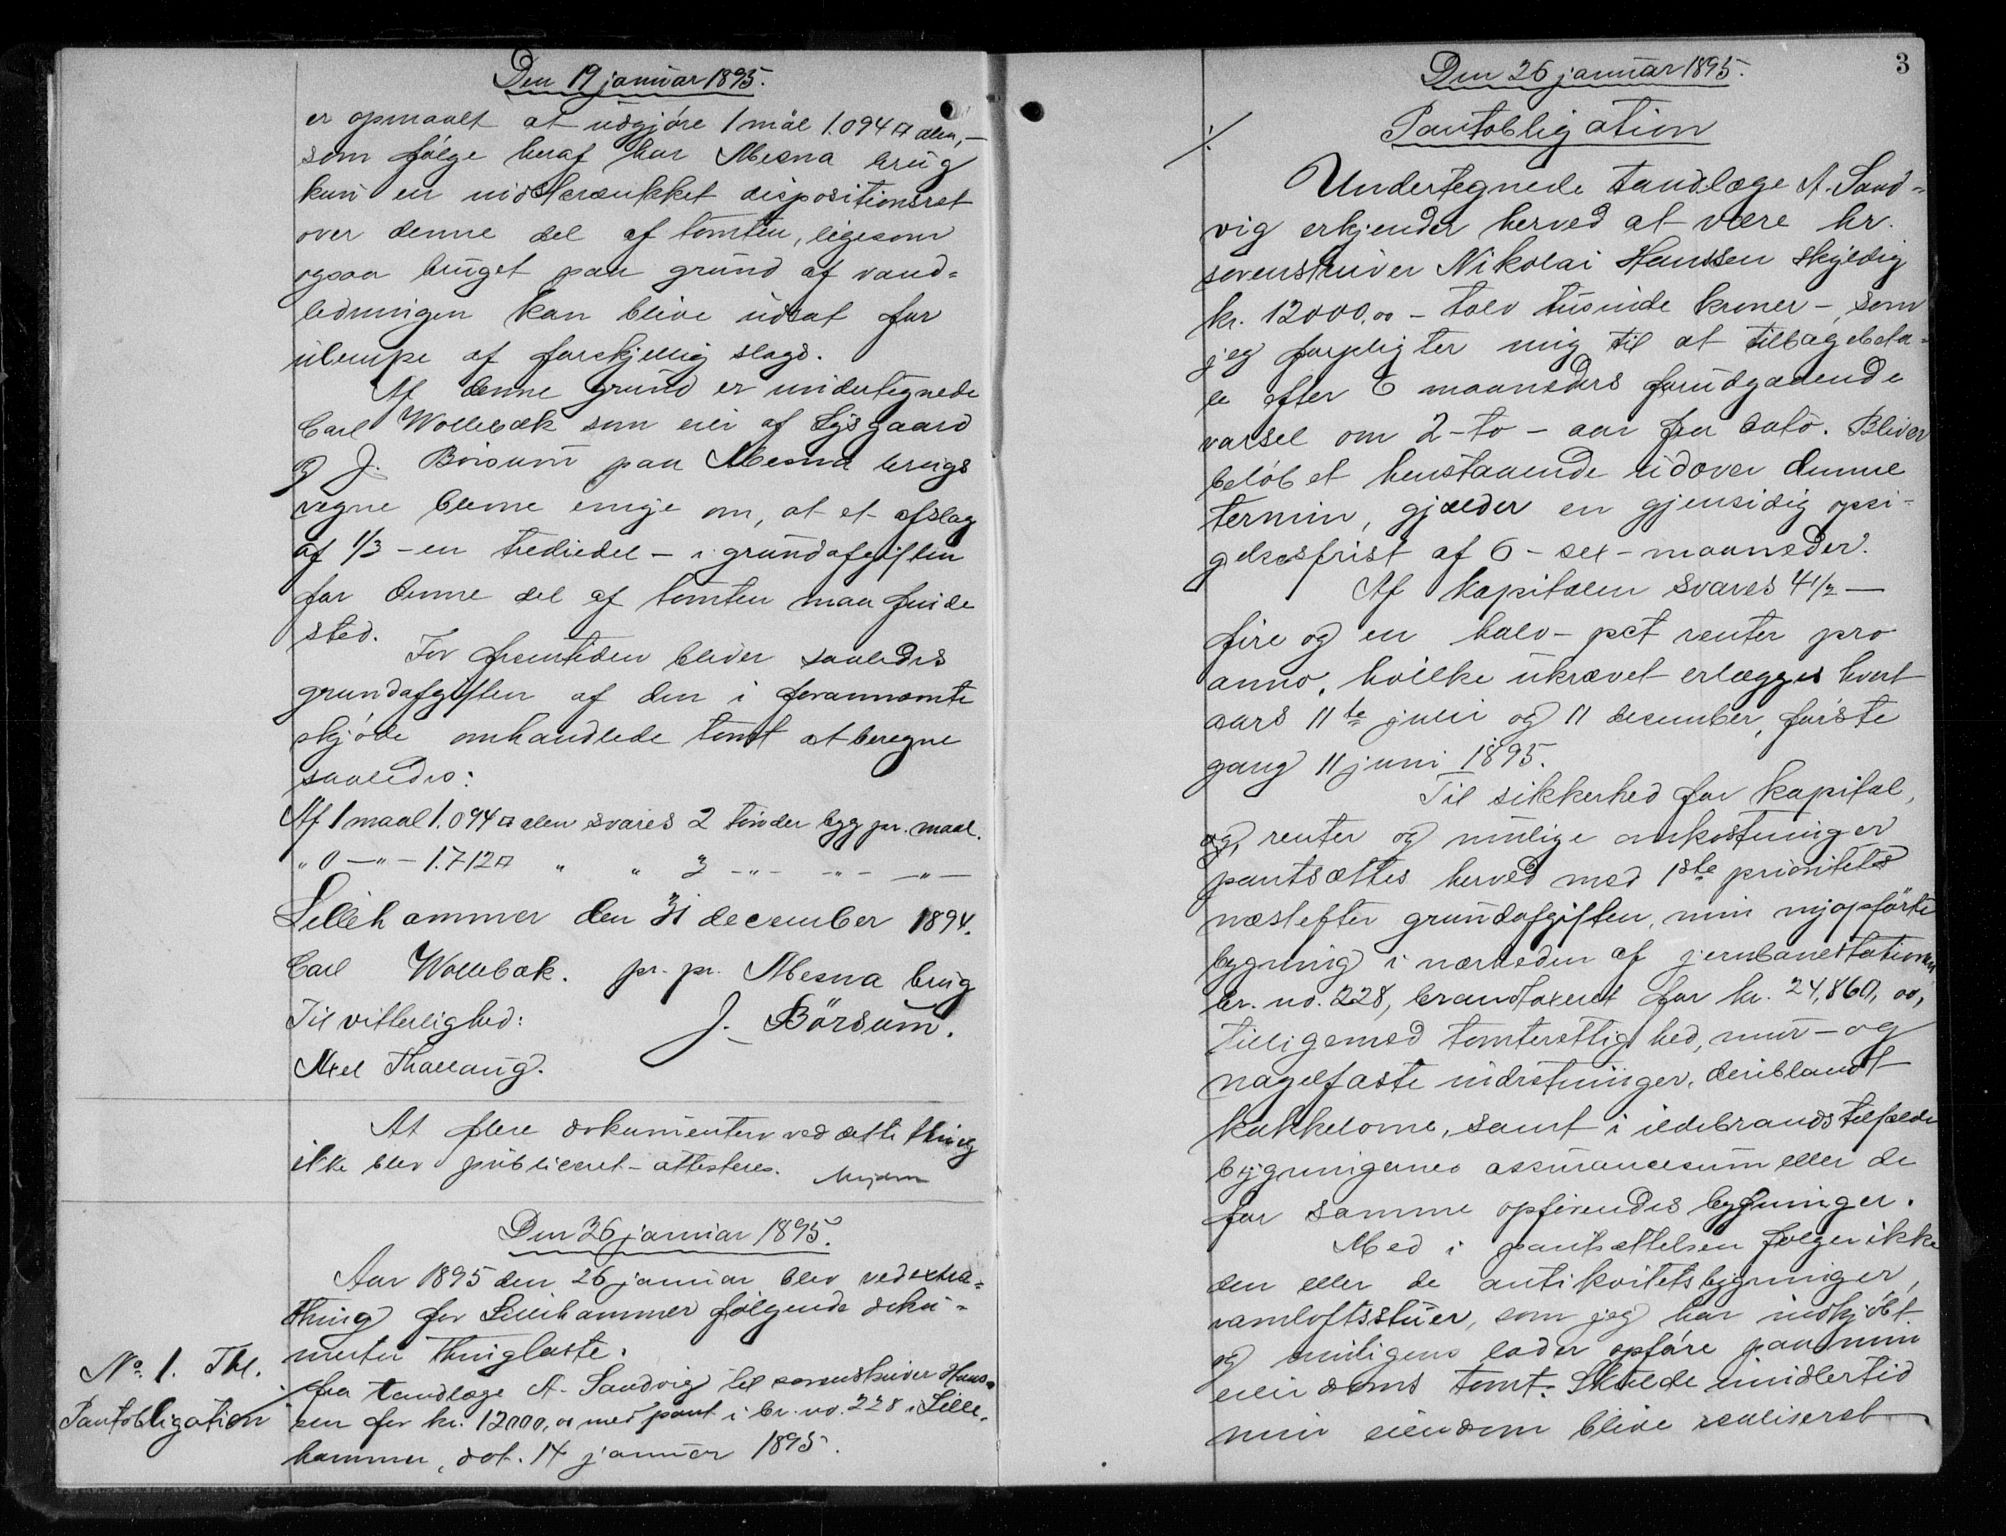 Den 19 januar 1895.
er opmaalt at udgjøre 1 mål 1.094 □ alen, –
som følge heraf har Mesna brug
kun en indskrænkket dispositionsret
over denne del af tomten, ligesom
ogsaa bruget paa grund af vand-
ledningen kan blive udsat for
ulempe af forskjellig slags.
Af denne grund er undertegnede
Carl Wollebæk som eier af Lysgaard
og J. Börsum paa Mesna brugs
vegne blevne enige om, at et afslag
af 1/3 – en trediedel – i grundafgiften
for denne del af tomten maa finde
sted.
For fremtiden bliver saaledes
grundafgiften af den i forannævnte
skjøde omhandlede tomt at beregne
saaledes:
Af 1 maal 1.094 □ alen svares 2 tønder byg pr. maal.
" 0 – " – 1.712 □ " " 3 – " – – " – – " –
Lillehammer den 31 december 1894.
Carl Wollebæk. pr. pr. Mesna brug
Til vitterlighed: J. Börsum.
Axel Thallaug.
At flere dokumenter ved dette thing
ikke blev publiceret – attesteres.
Den 26 januar 1895.
Aar 1895 den 26 januar blev ved extra-
thing for Lillehammer følgende doku-
menter thinglæste.
No. 1. Thl.
Pantobligation
fra tandlæge A. Sandvig til sorenskriver Hans-
sen for kr. 12000,00 med pant i br. no. 228 i Lille-
hammer, dat. 14 januar 1895.
Den 26 januar 1895.
3
./.
Pantobligation
Undertegnede tandlæge A. Sand-
vig erkjender herved at være hr.
sorenskriver Nikolai Hanssen skyldig
kr. 12000,00 – tolv tusinde kroner –, som
jeg forpligter mig til at tilbagebeta-
le efter 6 maaneders forudgaaende
varsel om 2 – to – aar fra dato. Bliver
beløbet henstaaende udover denne
termin, gjælder en gjensidig opsi-
gelsesfrist af 6 – sex – maaneder.
Af kapitalen svares 4 1/2 –
fire og en halv – pct renter pro
anno, hvilke ukrævet erlægges hvert
aars 11te juni og 11 desember, første
gang 11 juni 1895.
Til sikkerhed for kapital,
og, renter og mulige omkostninger
pantsættes herved med 1ste prioritets
næstefter grundafgiften, min nyopførte
bygning i nærheden af jernbanestationen
br. no. 228, brandtaxeret for kr. 24,860,00,
tilligemed tomterettighed, mur – og
nagelfaste indretninger, deriblandt
kakkelovne, samt i ildebrandstilfælde
bygningernes assurancesum eller de
for samme opførendes bygninger.
Med i pantsættelsen følger ikke
den eller de antikvitetsbygninger,
ramloftsstuer, som jeg har indkjøbt
og muligens lader opføre paa min
eiendoms tomt. Skulde imidlertid
min eiendom blive realiseret